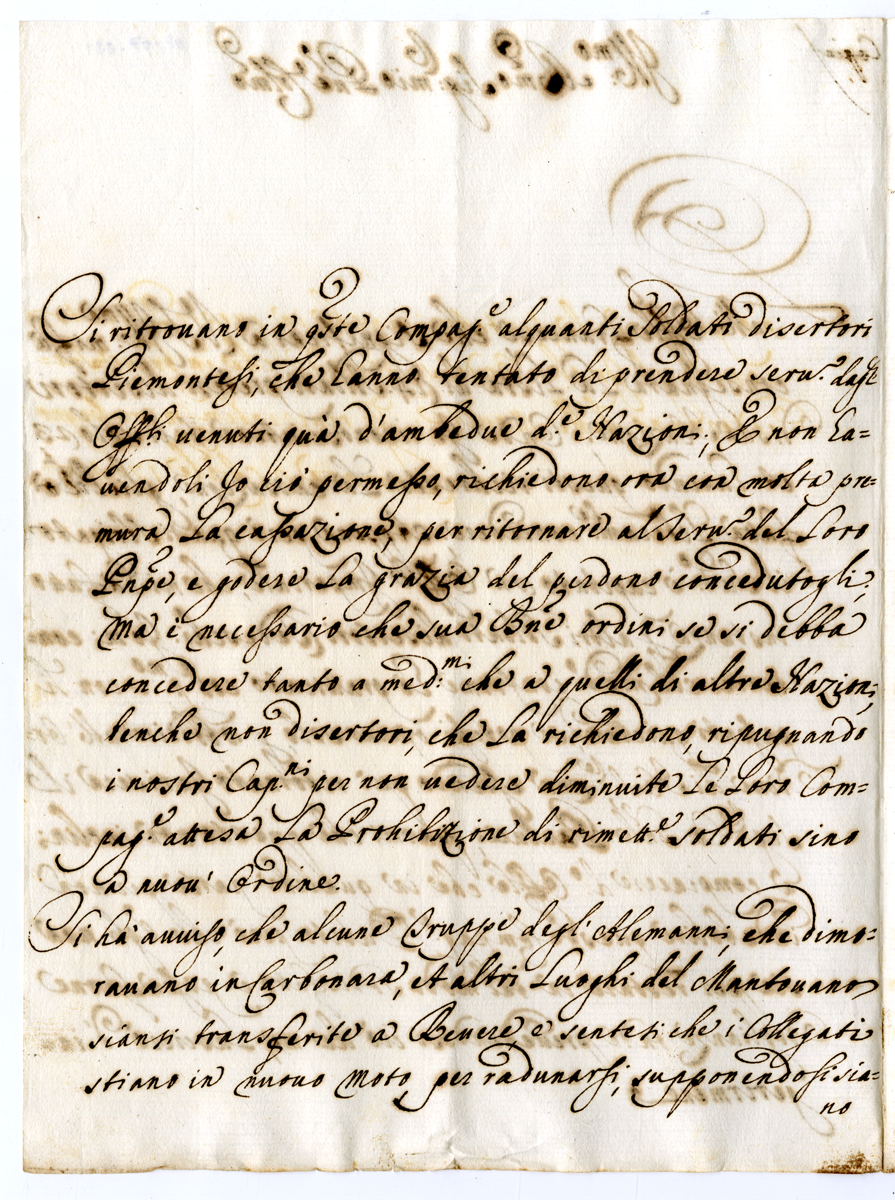 Si ritrouano in qste Compag.e alquanti Soldati disertori
Piemontesi, che hanno tentato di prendere seru.o dagl
Offli uenuti quà d'ambedue d.e Nazioni; & non ha=
uendoli Jo ciò permesso, richiedono ora con molta pre=
mura La cassazione, per ritornare al Seru.o del Loro
Pnpe, e godere La grazia del perdono concedutogli;
Ma è necessario che sua Bne ordini se si debba
concedere tanto a med.mi che a quelli di altre Nazioni,
benche non disertori, che La richiedono, ripugnando
i nostri Cap.ni per non uedere diminuite Le Loro Com=
pag.e attesa La Prohibizione di rimett.e soldati sino
a nuou' Ordine.
Si hà auuiso, che alcune Truppe degl'Alemanni, che dimo=
rauano in Carbonara, et altri Luoghi del Mantouano
siansi transferite a Reuere, e sentesi che i Collegati
stiano in nuouo moto per radunarsi, supponendosi sia=
no